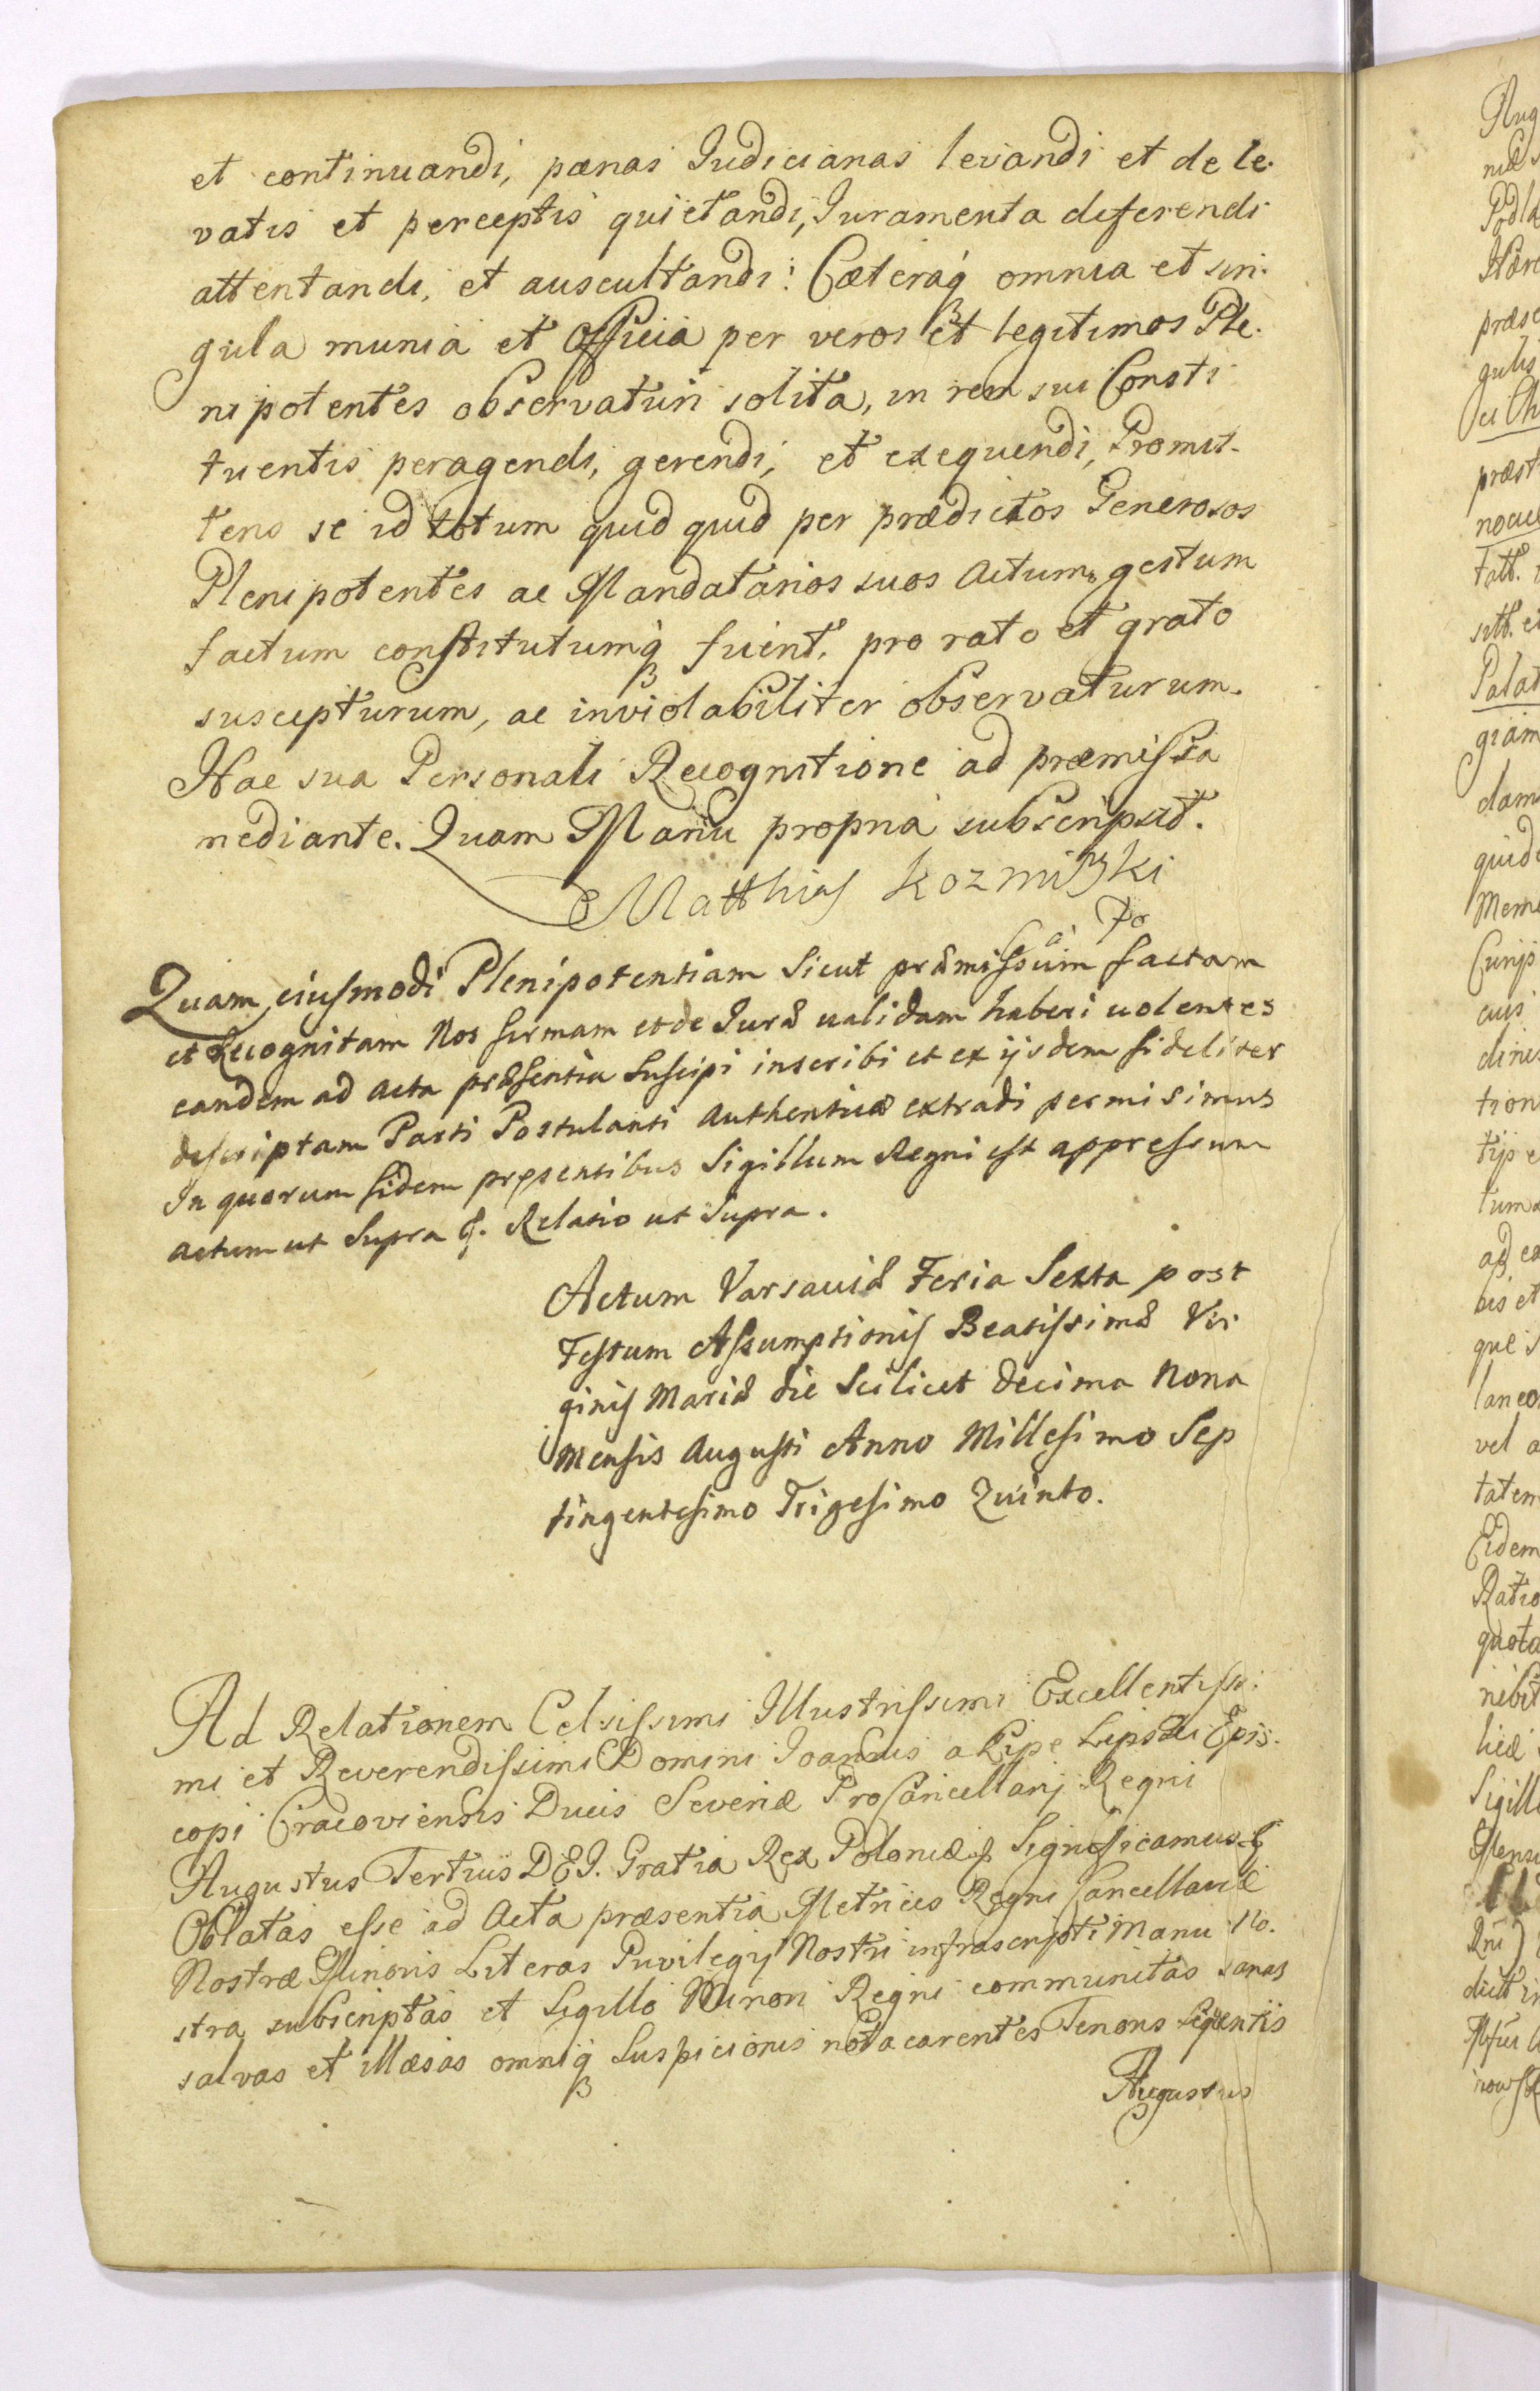 et continuandi, pænas Judicianas levandi et de le.
vatis et perceptis quietandi, Juramenta deferendi
attentandi, et auscultandi: Cæteraq́ omnia et sin.
gula munia et Officia per veros et legitimos Ple.
nipotentes observaturi solita, in rem sui Consti
tuentis peragendi, gerendi, et exequendi, Promit.
tens se id totum quid quid per prædictos Generosos
Plenipotentes ac Mandatarios suos actum, gestum
factum constitutumq́ fuerit, pro rato et grato
suscepturum, ac inviolabiliter observaturum.
Hac sua Personali Recognitione ad præmissa
mediante. Quam Manu propria subscripsit.
Matthias Kozminski
Quam eiusmodi Plenipotentiam Sicut præmissum factam
et Recognitam Nos firmam et de Jure validam haberi uolentes
eandem ad Acta præsentia Suscipi inscribi et ex ijsdem fideliter
descriptam Parti Postulanti Authentice extradi permisimus
In quorum fidem præsentibus Sigillum Regni est appressum
Actum ut Supra &. Relatio ut Supra.
Actum Varsaviæ Feria Sexta post
Festum Assumptionis Beatissimæ Vir
ginis Mariæ die Scilicet decima Nona
Mensis Augusti Anno Millesimo Sep
tingentesimo Trigesimo Quinto.
Ad Relationem Celsissimi Illustrissimi Excellentissi.
mi et Reverendissimi Domini Joannis a Lipe Lipski Epis.
copi Cracoviensis Ducis Severiæ ProCancellarij Regni
Augustus Tertius DEI. Gratia Rex Poloniæ & Significamus &
Oblatas esse ad Acta præsentia Metrices Regni Cancellariæ
Nostræ Minoris Literas Privilegij Nostri infrascripti Manu No.
stra subscriptas et Sigillo Minori Regni communitas sanas
salvas et illæsas omniq́ Suspicionis nota carentes Tenoris Seqüentis
Augustus